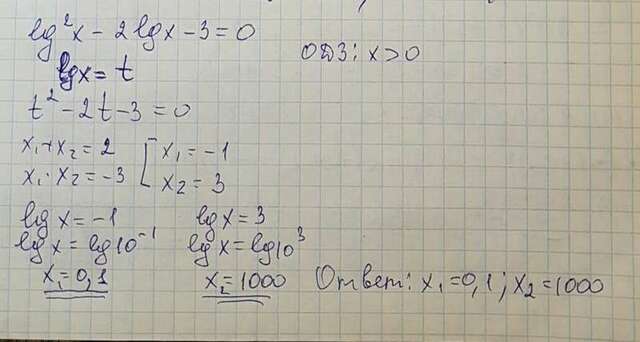 lg²x - 2lgx - 3 = 0
ОДЗ: x > 0
lgx = t
t² - 2t - 3 = 0
x₁ + x₂ = 2
x₁ · x₂ = -3
[ x₁ = -1
x₂ = 3
lg x = -1
lg x = lg10⁻¹
x₁ = 0,1
lg x = 3
lg x = lg10³
x₂ = 1000
Ответ: x₁ = 0,1; x₂ = 1000